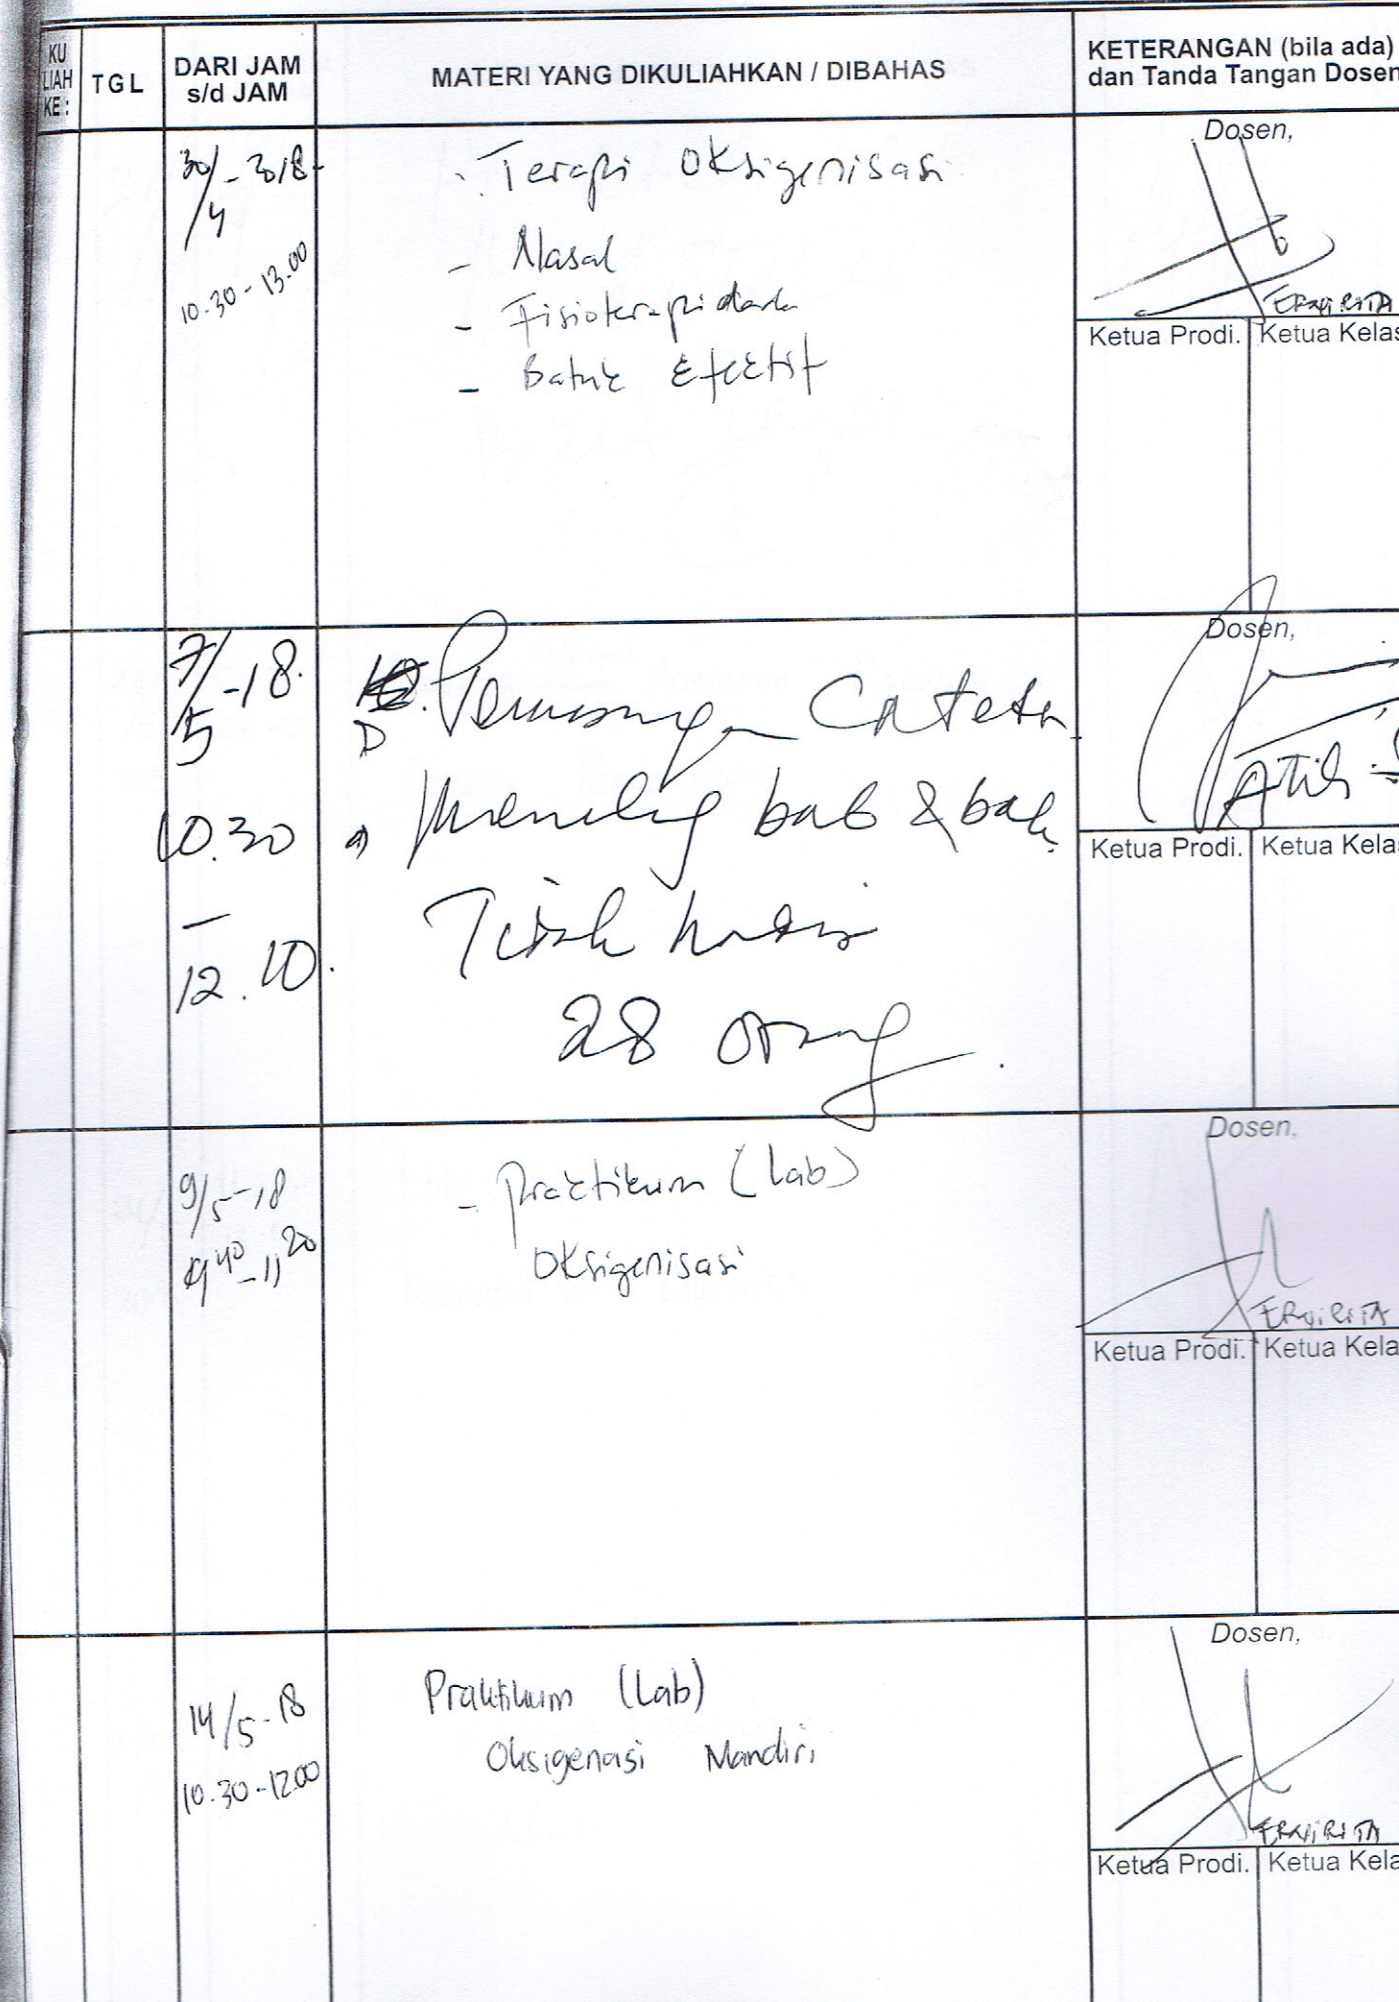 KU
LIAH
KE :
TGL
DARI JAM
s/d JAM
MATERI YANG DIKULIAHKAN / DIBAHAS
KETERANGAN (bila ada)
dan Tanda Tangan Dosen
30/4 - 2018
10.30 - 13.00
- Terapi Oksigenisasi
- Nasal
- Fisioterapi dada
- Batuk Efektif
Dosen,
ERVIRITA
Ketua Prodi. Ketua Kelas
7/5 - 18.
10.30
-
12.10.
Pemasangan Cateter
bab & bak
28 orang.
Dosen,
Ketua Prodi. Ketua Kela
9/5 - 18
9 40 - 11 20
- Praktikum (Lab)
Oksigenisasi
Dosen,
ERVIRITA
Ketua Prodi. Ketua Kela
14/5 - 18
10.30 - 12.00
Praktikum (Lab)
Oksigenasi Mandiri
Dosen,
ERVIRITA
Ketua Prodi. Ketua Kela